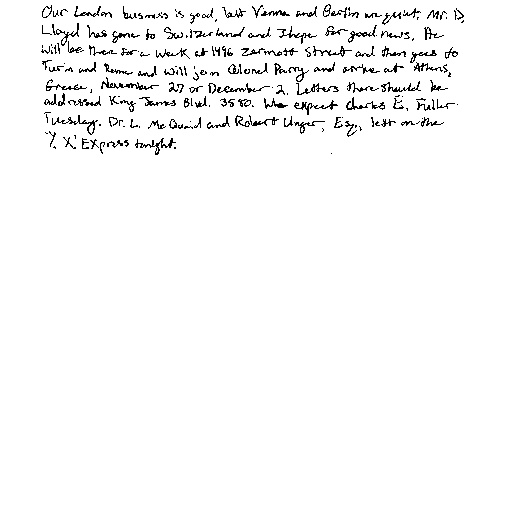 Our London business is good, but Vienna and Berlin are quiet. Mr. D.
Lloyd has gone to Switzerland and I hope for good news. He
will be there for a week at 1496 Zermott Street and then goes to
Turin and Rome and will join Colonel Parry and arrive at Athens,
Greece, November 27 or December 2. Letters there should be
addressed King James Blvd. 3580. We expect Charles E. Fuller
Tuesday. Dr. L. McQuaid and Robert Unger, Esq., left on the
"Y. X." Express tonight.